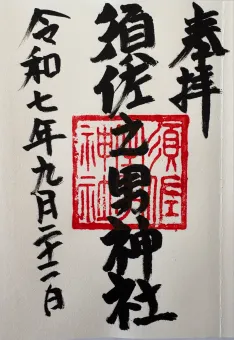 奉拝
須佐之男神社
須佐
之男
神社
令和七年九月二十二日